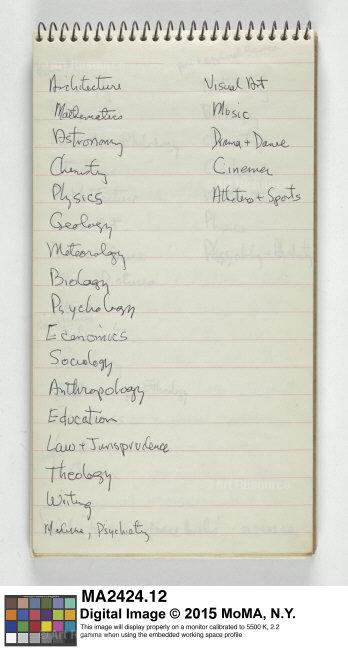 Architecture
Mathematics
Astronomy
Chemistry
Physics
Geology
Meteorology
Biology
Psychology
Economics
Sociology
Anthropology
Education
Law + Jurisprudence
Theology
Writing
Medicine, Psychiatry
Visual Art
Music
Drama + Dance
Cinema
Athletics + Sports
MA2424.12
Digital Image © 2015 MoMA, N.Y.
This image will display properly on a monitor calibrated to 5500 K, 2.2
gamma when using the embedded working space profile